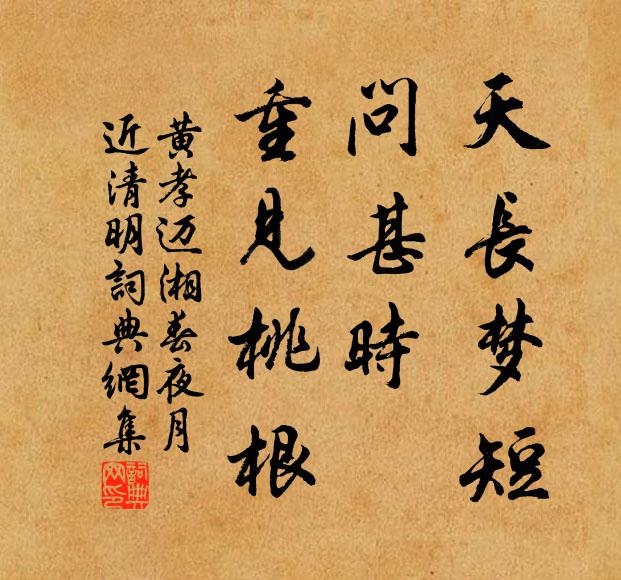 天長梦短
問甚時
重見桃根
黄孝迈湘春夜月
近清明詞典網集
詞典網印